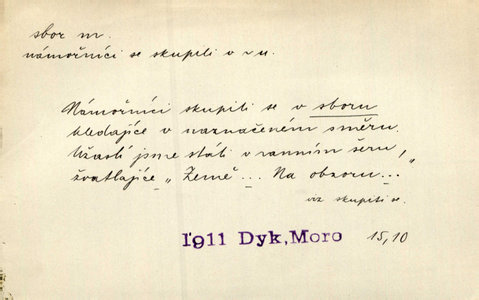 sbor m.
námořníci se skupili v ~ u.
Námořníci skupili se v sboru
hledajíce v naznačeném směru.
Užaslí jsme stáli v ranním šeru,
žvatlajíce „Země... Na obzoru..."
viz skupiti se.
1911 Dyk, Moro 15,10